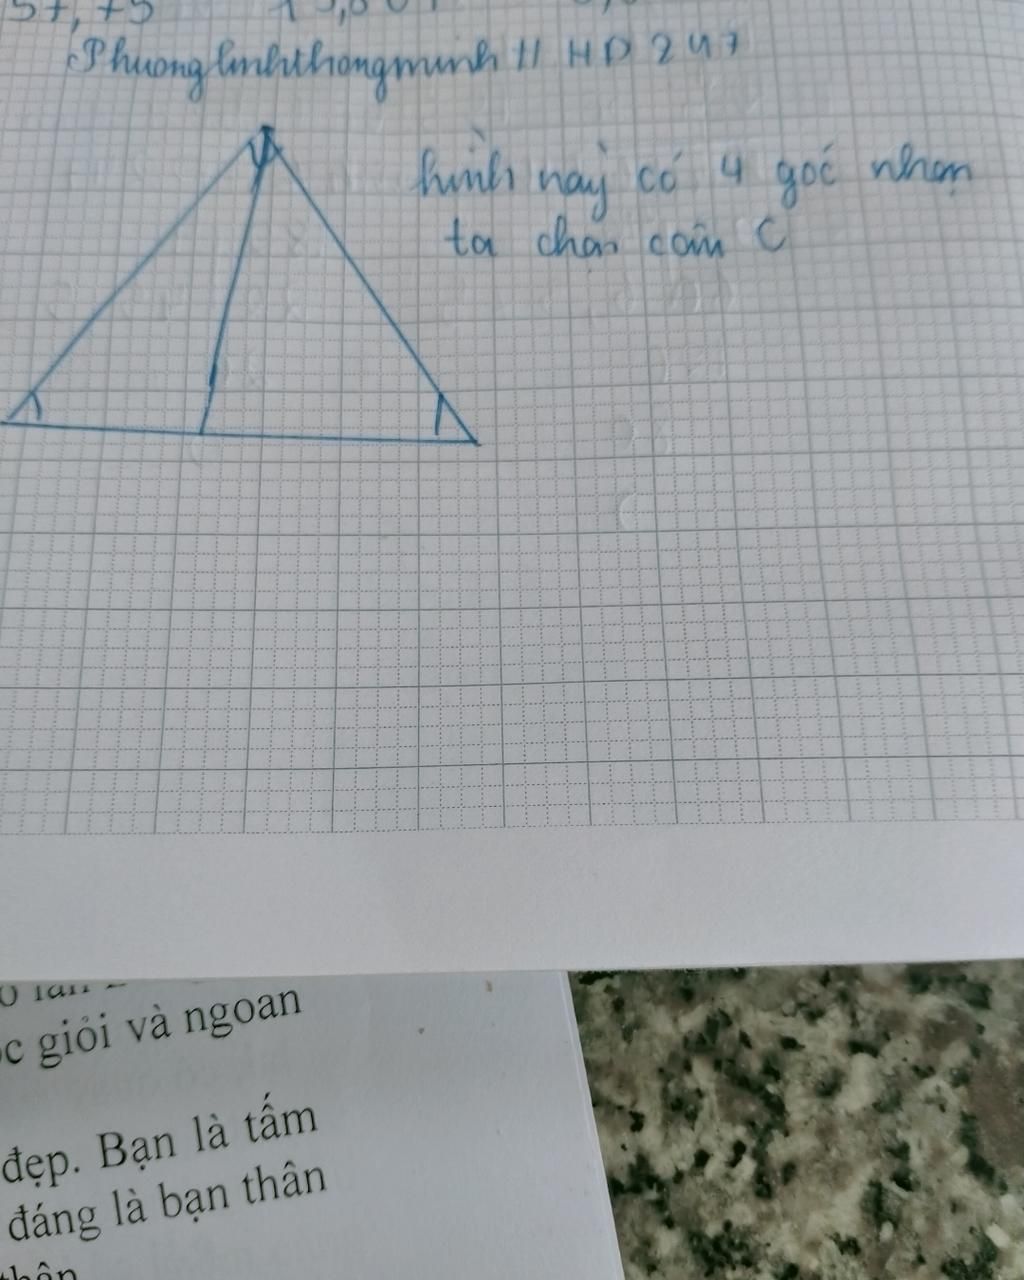 57,75
Phuonglinhthongminh 11 HD 247
hình này có 4 goć nhọn
ta chọn câu C
ọc giỏi và ngoan
đẹp. Bạn là tấm
đáng là bạn thân
thân